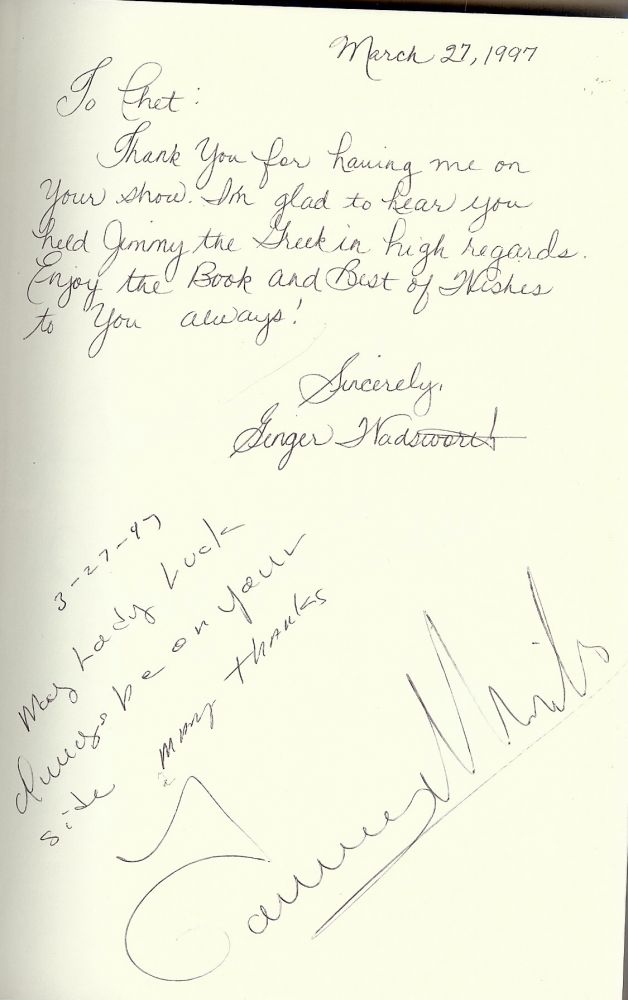 March 27, 1997
To Chet:
Thank You for having me on
Your show. I'm glad to hear you
held Jimmy the Greek in high regards.
Enjoy the Book and Best of Wishes
to You always!
Sincerely,
Ginger Wadsworth
3-27-97
May Lady Luck
always be on your
side many thanks